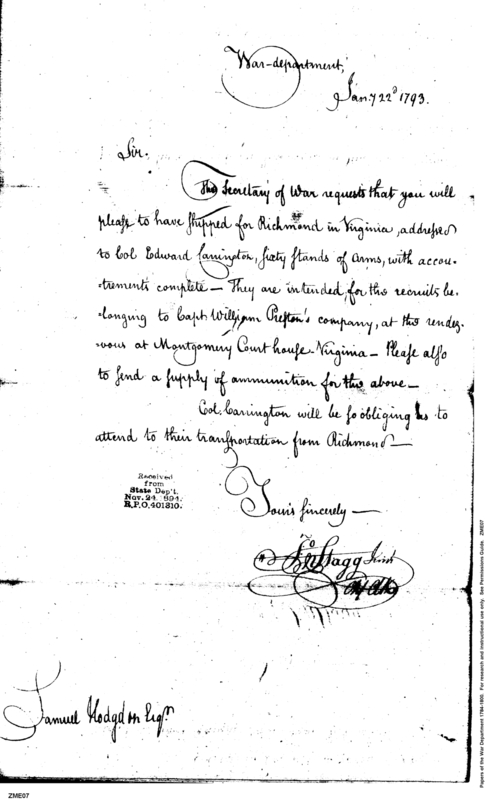 War-department,
Jany 22d 1793.
Sir.
The Secretary of War requests that you will
please to have shipped for Richmond in Virginia, addressed
to Col Edward Carrington, sixty stands of arms, with accou-
trements complete — They are intended for the recruits be-
longing to Capt William Preston's company, at the rendez-
vous at Montgomery Court house Virginia — Please also
to send a supply of ammunition for the above —
Col. Carrington will be so obliging as to
attend to their transportation from Richmond —
Received
from
State Dep't.
Nov. 24. 1894.
R.P.O. 401310.
Yours sincerely —
Jno Stagg Junr
Samuel Hodgdon Esqr.
ZME07
Papers of the War Department 1784-1800. For research and instructional use only. See Permissions Guide. ZME07